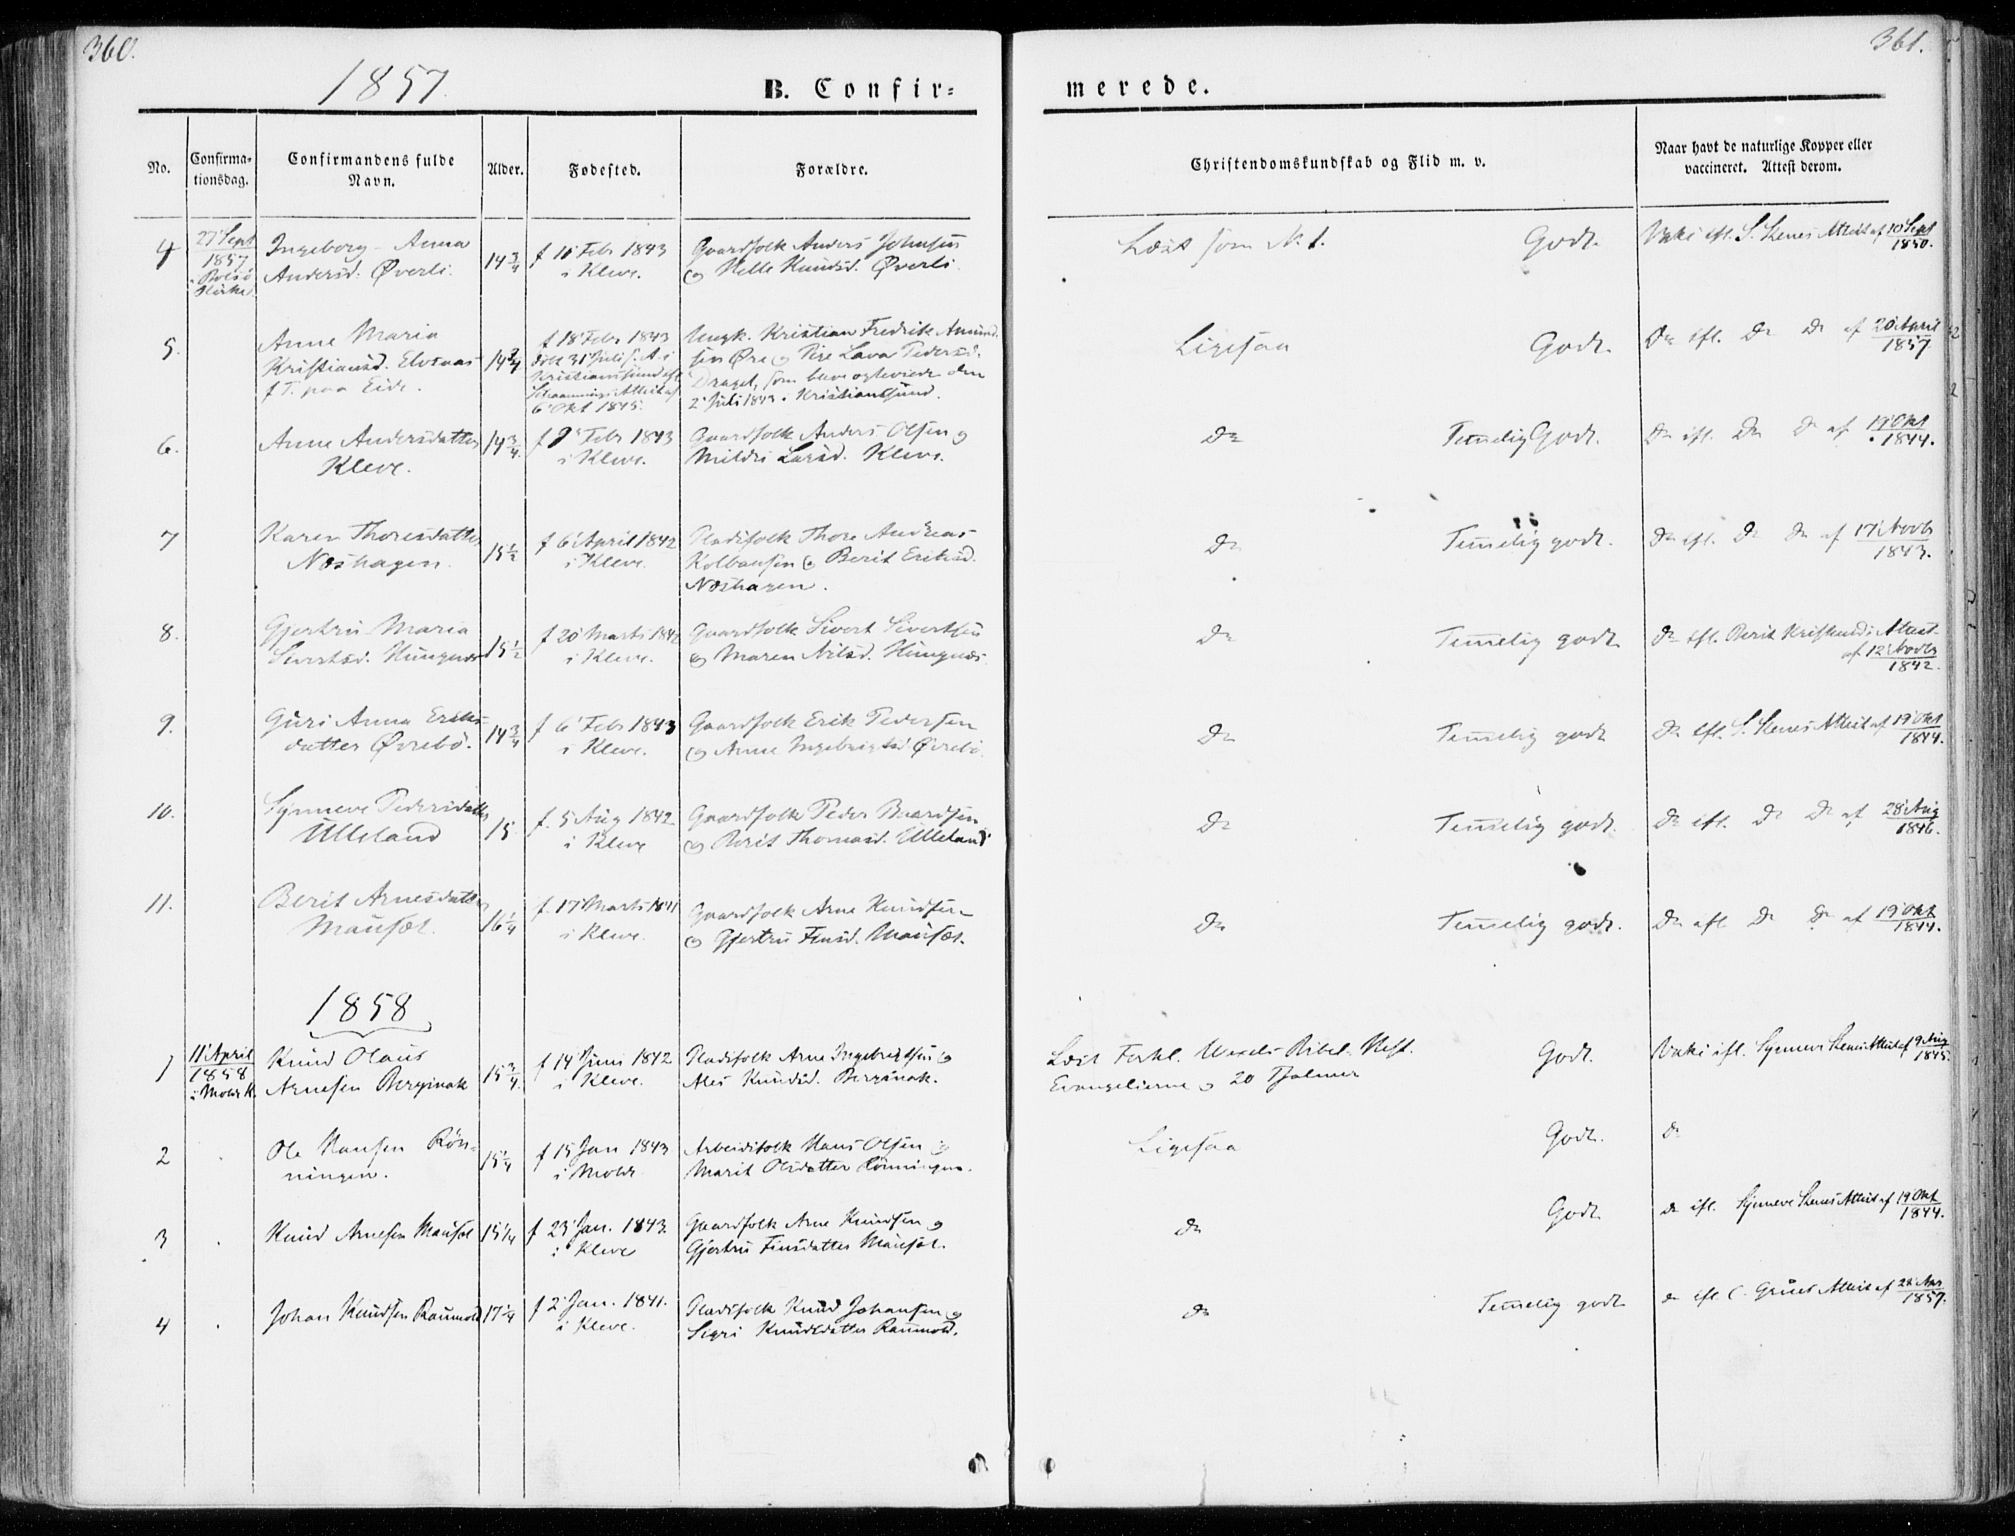 360.
361.
1857.
B. Confir=
merede.
No.
Confirma-
tionsdag.
Confirmandens fulde
Navn.
Alder.
Fødested.
Forældre.
Christendomskundskab og Flid m. v.
Naar havt de naturlige Kopper eller
vaccineret. Attest derom.
4
27 Sept
1857
i Bolsö
Kirke
Ingeborg Anna
Andersd. Øverli.
14 3/4
f 10 Feb 1843
i Kleve.
Gaardfolk Anders Johnsen
og Helle Knudsd. Øverli.
Læst som N. 1.
Godt.
Vaks efl. S. Stenes Attest af 10 Sept
1850.
5.
Anne Maria
Kristiansd. Elvsaas
f. T. paa Eide.
14 3/4
f 18 Febr 1843
döbt 31 Juli s. A. i
Kristiansund efl
Attest af
6 Okt 1845.
Ungk. Kristian Fredrik Amund-
sen Øre og Pige Lava Pedersd.
Draget, som bleve ægteviede den
2 Juli 1843 i Kristiansund.
Ligesaa
Godt.
Do efl. Do Do af 20 April
1857
6.
Anne Andersdatter
Kleve.
14 3/4
f 9 Febr 1843
i Kleve.
Gaardfolk Anders Olsen og
Mildri Larsd. Kleve.
Do
Temelig Godt.
Do efl. Do Do af 19 Okt
1844.
7
Karen Thoresdatter
Næshagen.
15 1/2
f 6 April 1842
i Kleve.
Pladsfolk Thore Andreas
Kolbansen og Berit Eriksd.
Næshagen.
Do
Temelig godt.
Do efl. Do Do af 17 Novbr
1843.
8.
Gjertru Maria
Sivertsd. Hungnes
15 1/2
f 20 Marts 1842
i Kleve.
Gaardfolk Sivert Sivertsen
og Maren Nilsd. Hungnes.
Do
Temelig godt.
Do efl. Berit Kristens Attest
af 12 Novbr
1842.
9.
Guri Anna Eriks-
datter Øvrebö.
14 3/4
f 6 Febr 1843
i Kleve.
Gaardfolk Erik Pedersen
og Anne Ingebrigtsd Øvrebö.
Do
Temelig godt
Do efl. S. Stenes Attest af 19 Okt
1844.
10.
Synneve Pedersdatter
Ulleland
15
f. 5 Aug 1842
i Kleve
Gaardfolk Peder Baardsen
og Berit Thomasd. Ulleland
Do
Temelig godt.
Do efl. Do Do af 28 Aug
1846.
11.
Berit Arnesdatter
Mausæt.
16 1/4
f. 17 Marts 1841
i Kleve.
Gaardfolk Arne Knudsen
og Gjertru Finsd. Mausæt.
Do
Temelig godt.
Do efl Do Do af 19 Okt
1844.
1858
1
11 April
1858
i Molde K.
Knud Olaus
Arnesen Berginak
15 3/4
f 14 Juni 1842
i Kleve.
Pladsfolk Arne Ingebrigtsen og
Ales Knudsd. Berginak.
Læst Forkl. Wexels Bibel. Hist.
Evangelierne og 20 Psalmer
Godt.
Vaks efl. Synneve Stenes Attest af 9 Aug
1845.
2
Ole Hansen Rön-
ningen.
15 1/4
f 15 Jan 1843
i Molde
Arbeidsfolk Hans Olsen og
Marit Olsdatter Rönningen.
Ligesaa
Godt.
do
3
Knud Arnesen Mausæt
15 1/4
f 23 Jan. 1843
i Kleve
Gaardfolk Arne Knudsen og
Gjertru Finsdatter Mausæt.
do
Godt
do efl. Synneve Stenes Attest af 19 Okt
1844.
4
Johan Knudsen Raumold
17 1/4
f 2 Jan. 1841.
i Kleve.
Pladsfolk Knud Johansen og
Sigri Knudsdatter Raumold.
do
Temelig godt
do efl C. Grües Attest af 28 Apr
1857.